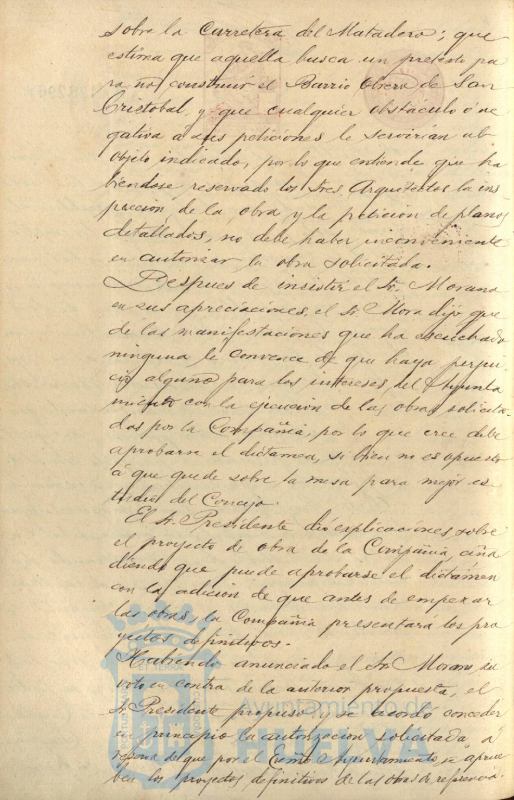 sobre la Carretera del Matadero; que
estima que aquella busca un pretesto pa
ra no construir el Barrio Obrero de San
Cristobal, y que cualquier obstáculo ó ne
gativa a sus peticiones le servirian al
objeto indicado, por lo que entiende que ha
biendose reservado los Sres. Arquitectos la ins
peccion de la obra y la peticion de planos
detallados, no debe haber inconveniente
en autorizar la obra solicitada.
Despues de insistir el Sr. Morano
en sus apreciaciones, el Sr. Mora dijo que
de las manifestaciones que ha escuchado
ninguna le convence de que haya perjui
cio alguno para los intereses del Ayunta
miento con la ejecucion de las obras solicita
dos por la Compañia, por lo que cree debe
aprobarse el dictamen, si bien no es opuesto
á que quede sobre la mesa para mejor es
tudio del Concejo.
El Sr. Presidente dió explicaciones sobre
el proyecto de obra de la Compañia, aña
diendo que puede aprobarse el dictámen
con la adicion de que antes de empezar
las obras, la Compañia presentará los pro
yectos definitivos.
Habiendo anunciado el Sr. Morano, su
voto en contra de la anterior propuesta, el
Sr. Presidente propuso y se acordó conceder
en principio la autorizacion solicitada á
reserva de que por el Excmo Ayuntamiento se aprue
ben los proyectos definitivos de las obras de referencia.
Ayuntamiento de
HUELVA